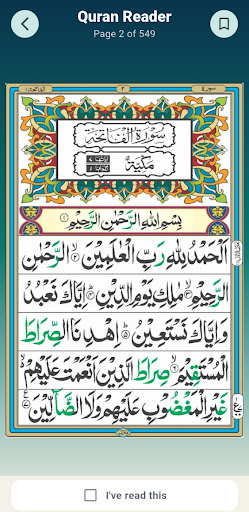 Quran Reader
Page 2 of 549
٢
سُورَةُ الْفَاتِحَة
مَكِّيَّةٌ
بِسْمِ اللهِ الرَّحْمٰنِ الرَّحِيْمِ ۝١
اَلْحَمْدُ لِلّٰهِ رَبِّ الْعٰلَمِيْنَ ۝٢ الرَّحْمٰنِ
الرَّحِيْمِ ۝٣ مٰلِكِ يَوْمِ الدِّيْنِ ۝٤ اِيَّاكَ نَعْبُدُ
وَاِيَّاكَ نَسْتَعِيْنُ ۝٥ اِهْدِنَا الصِّرَاطَ
الْمُسْتَقِيْمَ ۝٦ صِرَاطَ الَّذِيْنَ اَنْعَمْتَ عَلَيْهِمْ
غَيْرِ الْمَغْضُوْبِ عَلَيْهِمْ وَلَا الضَّآلِّيْنَ ۝٧
I've read this